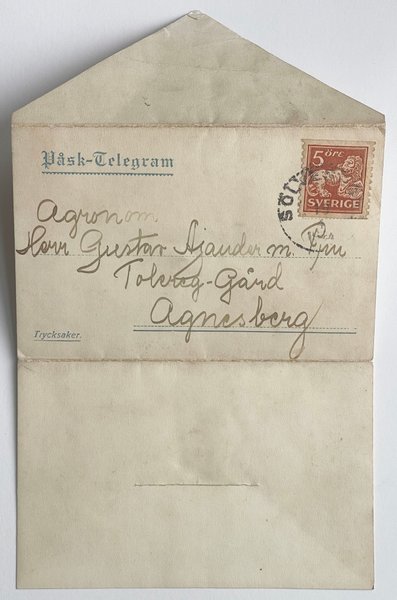 Påsk-Telegram
5 ÖRE
SVERIGE
SÖLV
Agronom
Herr Gustav Ajander m. Fru
Tolereg-Gård
Agnesberg
Trycksaker.